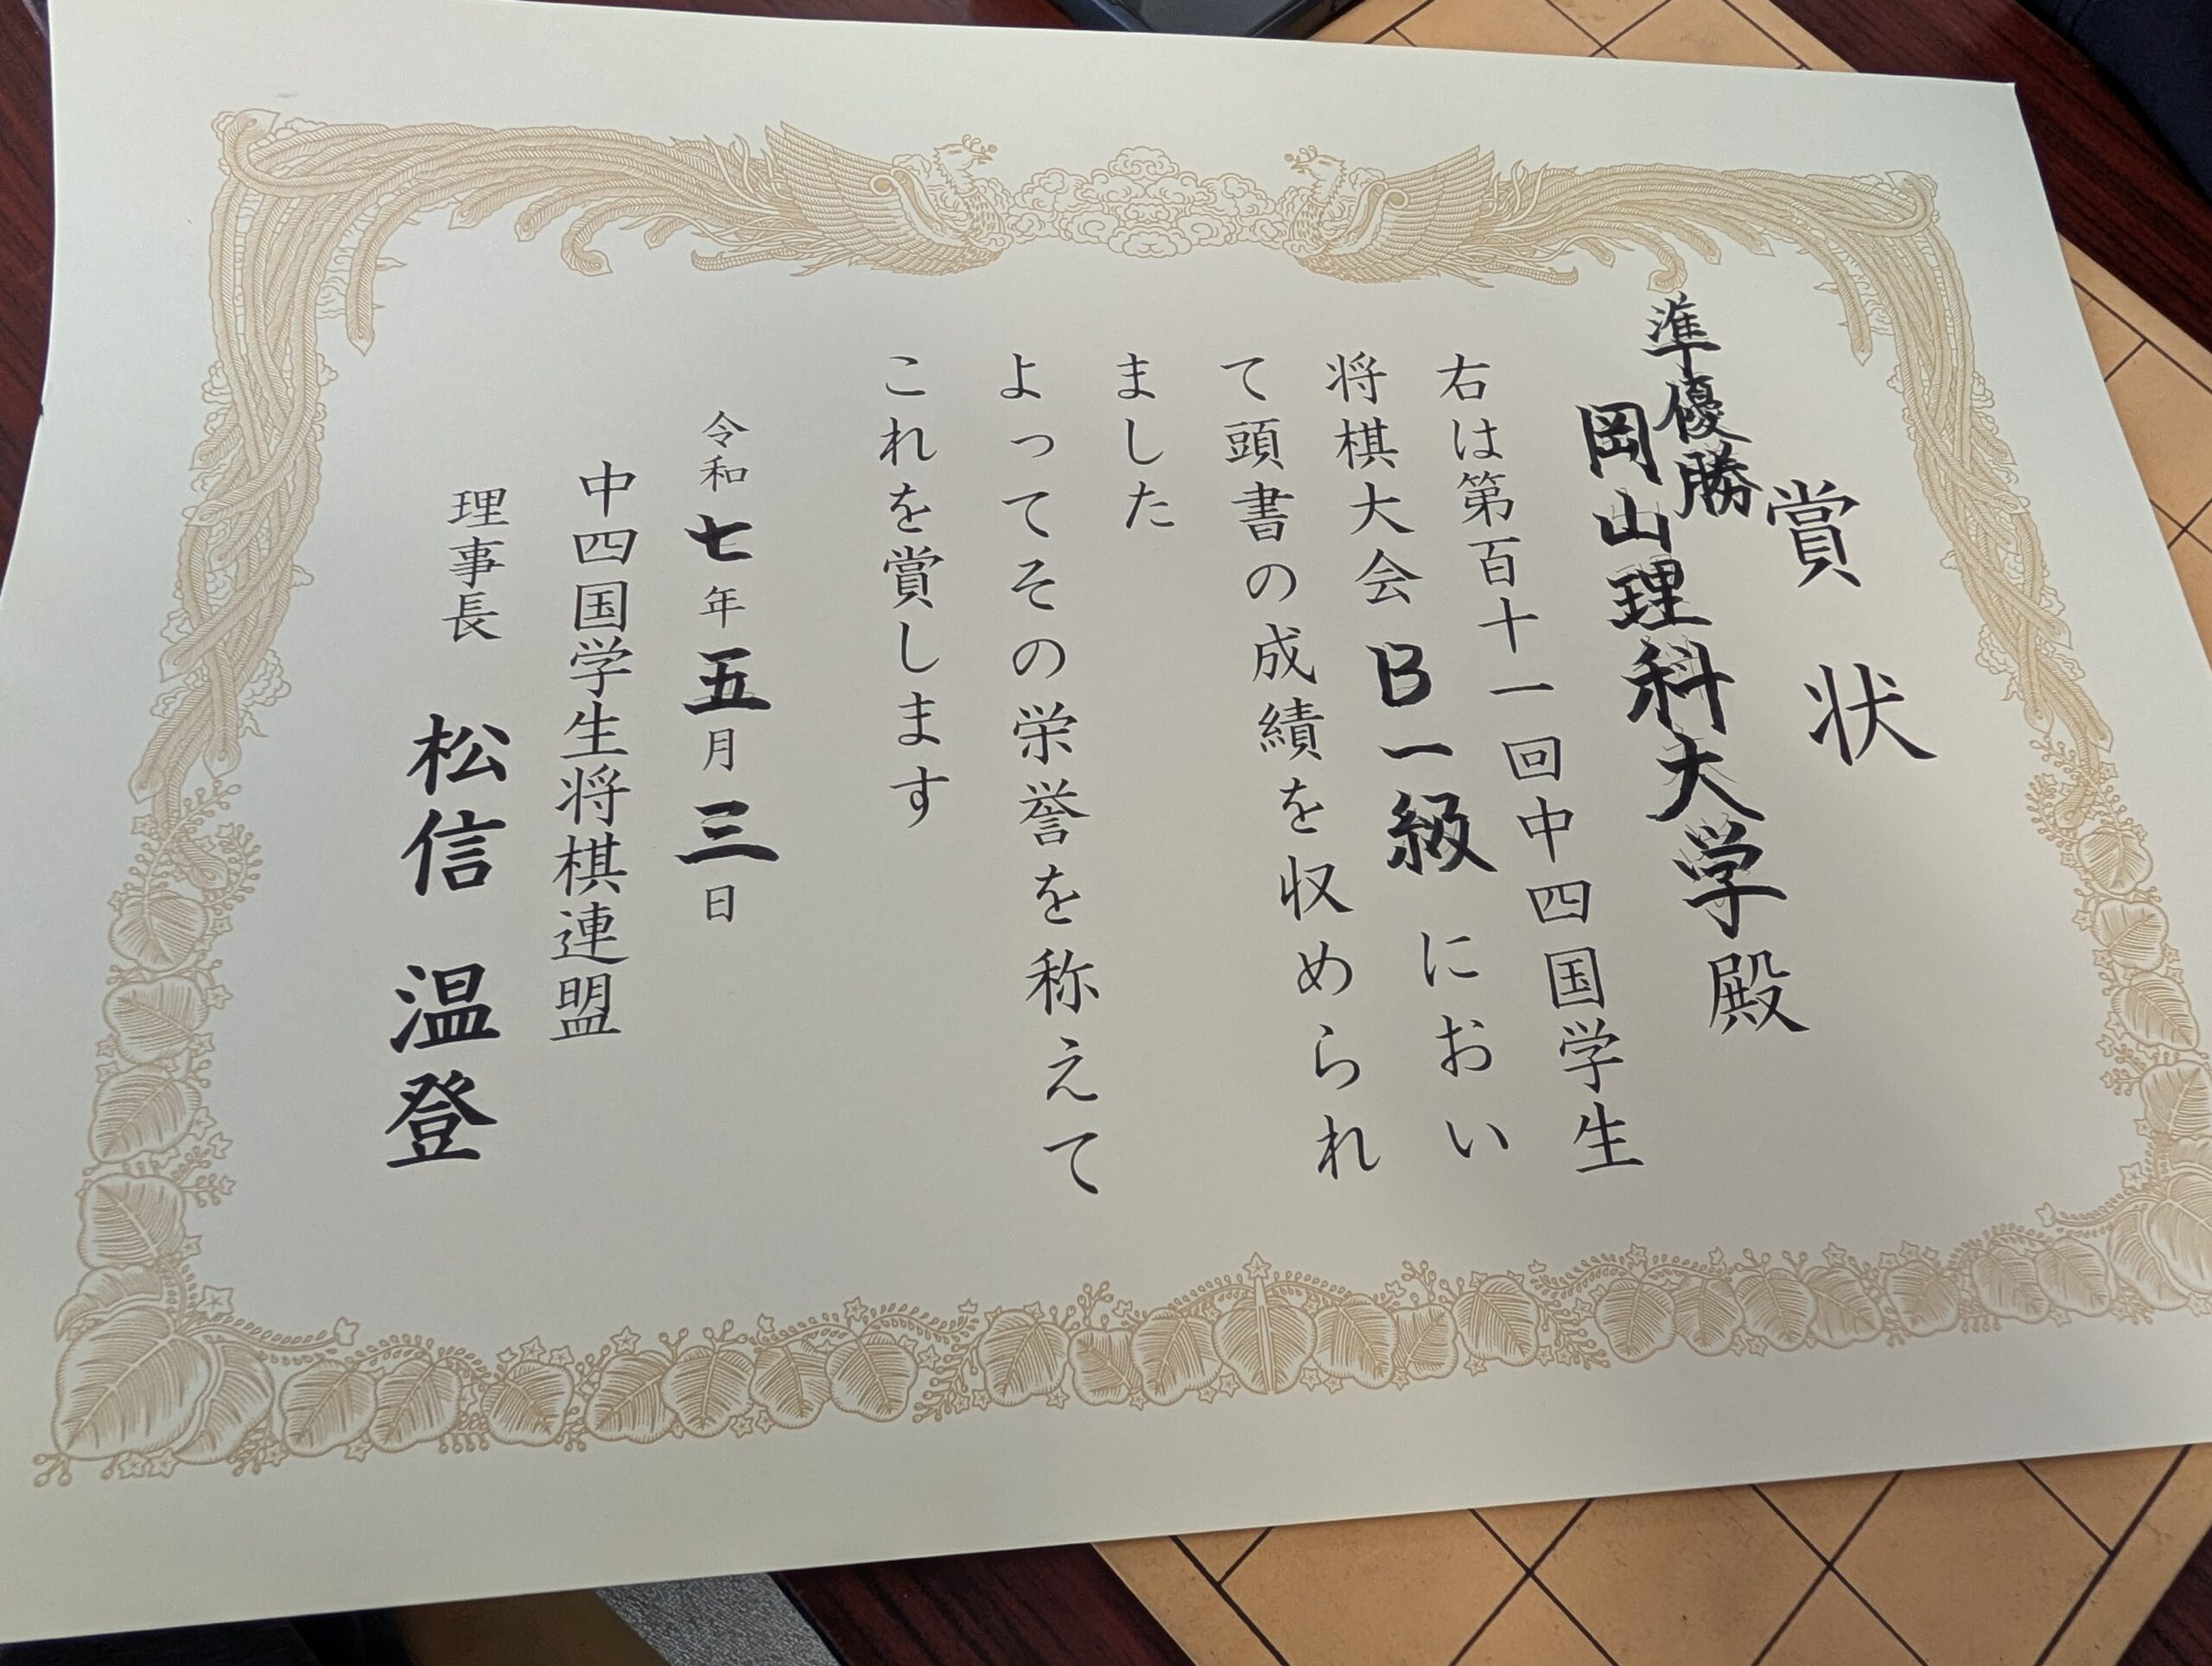 賞状
準優勝
岡山理科大学殿
右は第百十一回中四国学生
将棋大会B一級におい
て頭書の成績を収められ
ました
よってその栄誉を称えて
これを賞します
令和七年五月三日
中四国学生将棋連盟
理事長 松信温登